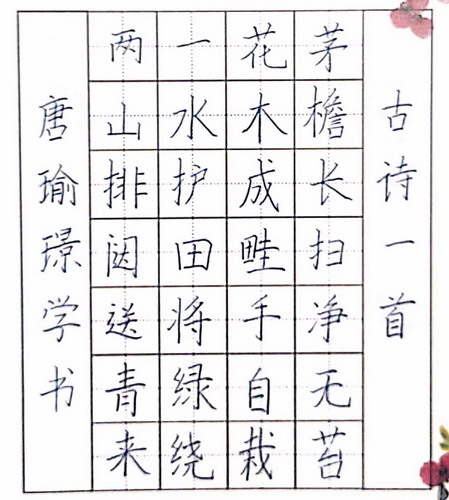 古诗一首
茅檐长扫净无苔
花木成畦手自栽
一水护田将绿绕
两山排闼送青来
唐瑜璟学书